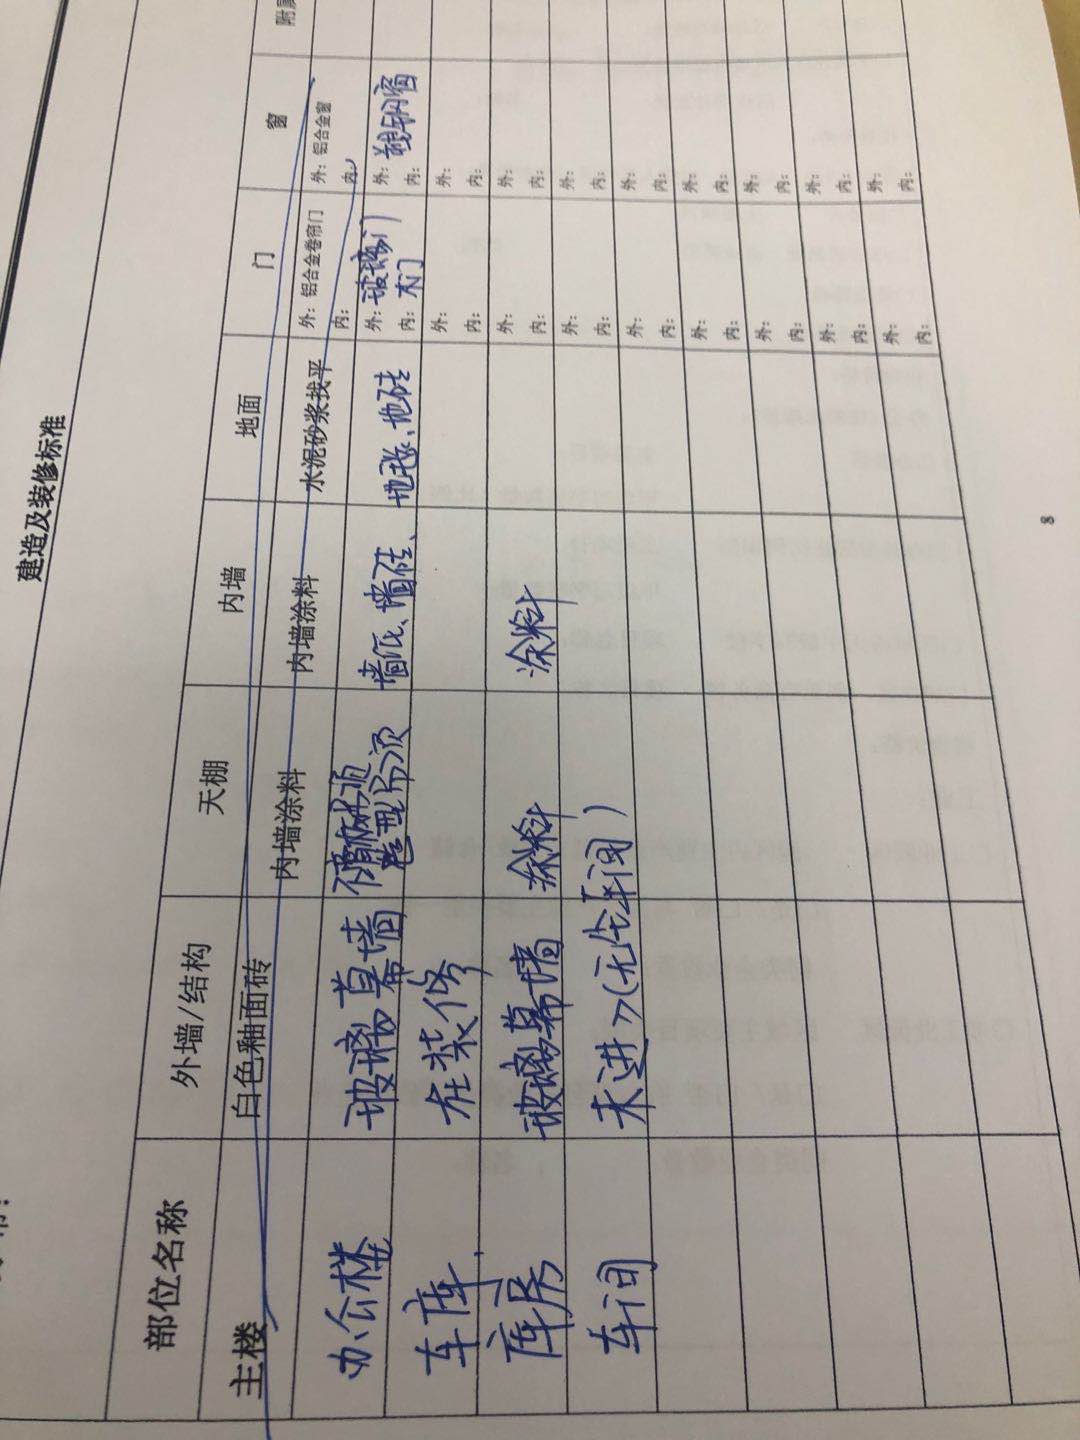 建造及装修标准
部位名称 外墙/结构 天棚 内墙 地面 门 窗
主楼 白色釉面砖 内墙涂料 内墙涂料 水泥砂浆找平 外：铝合金卷帘门 内： 外：铝合金窗 内：
办公楼 玻璃幕墙 造型吊顶 墙纸、墙砖、 地毯、地砖 外：玻璃门 内：木门 外： 内：
车库 在装修 外： 内： 外： 内：
库房 玻璃幕墙 涂料 涂料 外： 内： 外： 内：
车间 未进入(无尘车间) 外： 内： 外： 内：
外： 内： 外： 内：
外： 内： 外： 内：
外： 内： 外： 内：
外： 内： 外： 内：
外： 内： 外： 内：
8